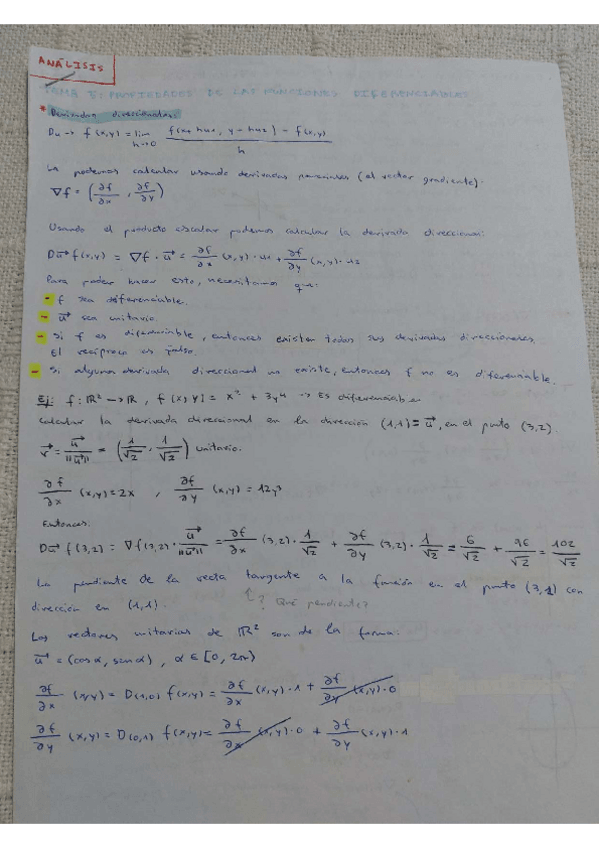 ANÁLISIS
TEMA 5: PROPIEDADES DE LAS FUNCIONES DIFERENCIABLES
* Derivadas direccionales:
Du→ f(x,y) = lim h→0 f(x+hu1, y+hu2) - f(x,y) / h
La podemos calcular usando derivadas parciales (el vector gradiente).
∇f = (∂f/∂x, ∂f/∂y)
Usando el producto escalar podemos calcular la derivada direccional:
Du→ f(x,y) = ∇f · u→ = ∂f/∂x (x,y)·u1 + ∂f/∂y (x,y)·u2
Para poder hacer esto, necesitamos que:
- f sea diferenciable.
- u→ sea unitario.
- Si f es diferenciable, entonces existen todas sus derivadas direccionales.
El recíproco es falso.
- Si alguna derivada direccional no existe, entonces f no es diferenciable.
Ej: f: ℝ² → ℝ, f(x,y) = x² + 3y⁴ → Es diferenciable en
Calcular la derivada direccional en la dirección (1,1) = u→, en el punto (3,2).
v→ = u→/||u→|| = (1/√2, 1/√2) unitario.
∂f/∂x (x,y) = 2x , ∂f/∂y (x,y) = 12y³
Entonces:
Du→ f(3,2) = ∇f(3,2) · u→/||u→|| = ∂f/∂x (3,2) · 1/√2 + ∂f/∂y (3,2) · 1/√2 = 6/√2 + 96/√2 = 102/√2
La pendiente de la recta tangente a la función en el punto (3,1) con
dirección en (1,1). ↑? Qué pendiente?
Los vectores unitarios de ℝ² son de la forma:
u→ = (cos α, sen α), α ∈ [0, 2π)
∂f/∂x (x,y) = D(1,0) f(x,y) = ∂f/∂x (x,y)·1 + ∂f/∂y (x,y)·0
∂f/∂y (x,y) = D(0,1) f(x,y) = ∂f/∂x (x,y)·0 + ∂f/∂y (x,y)·1